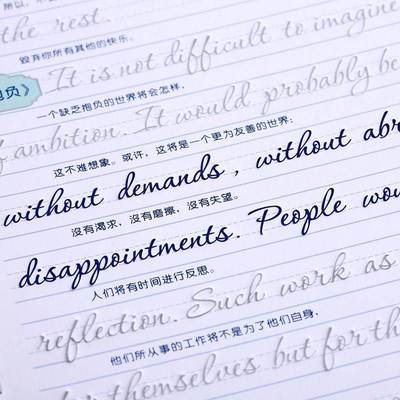 所以，不
the rest.
毁弃你所有其他的快乐。
抱负》
It is not difficult to imagine
一个缺乏抱负的世界将会怎样，
of ambition. It would probably be
这不难想象。或许，这将是一个更为友善的世界：
without demands, without abr
没有渴求，没有磨擦，没有失望。
disappointments. People wou
人们将有时间进行反思。
reflection. Such work as
他们所从事的工作将不是为了他们自身，
themselves but for th